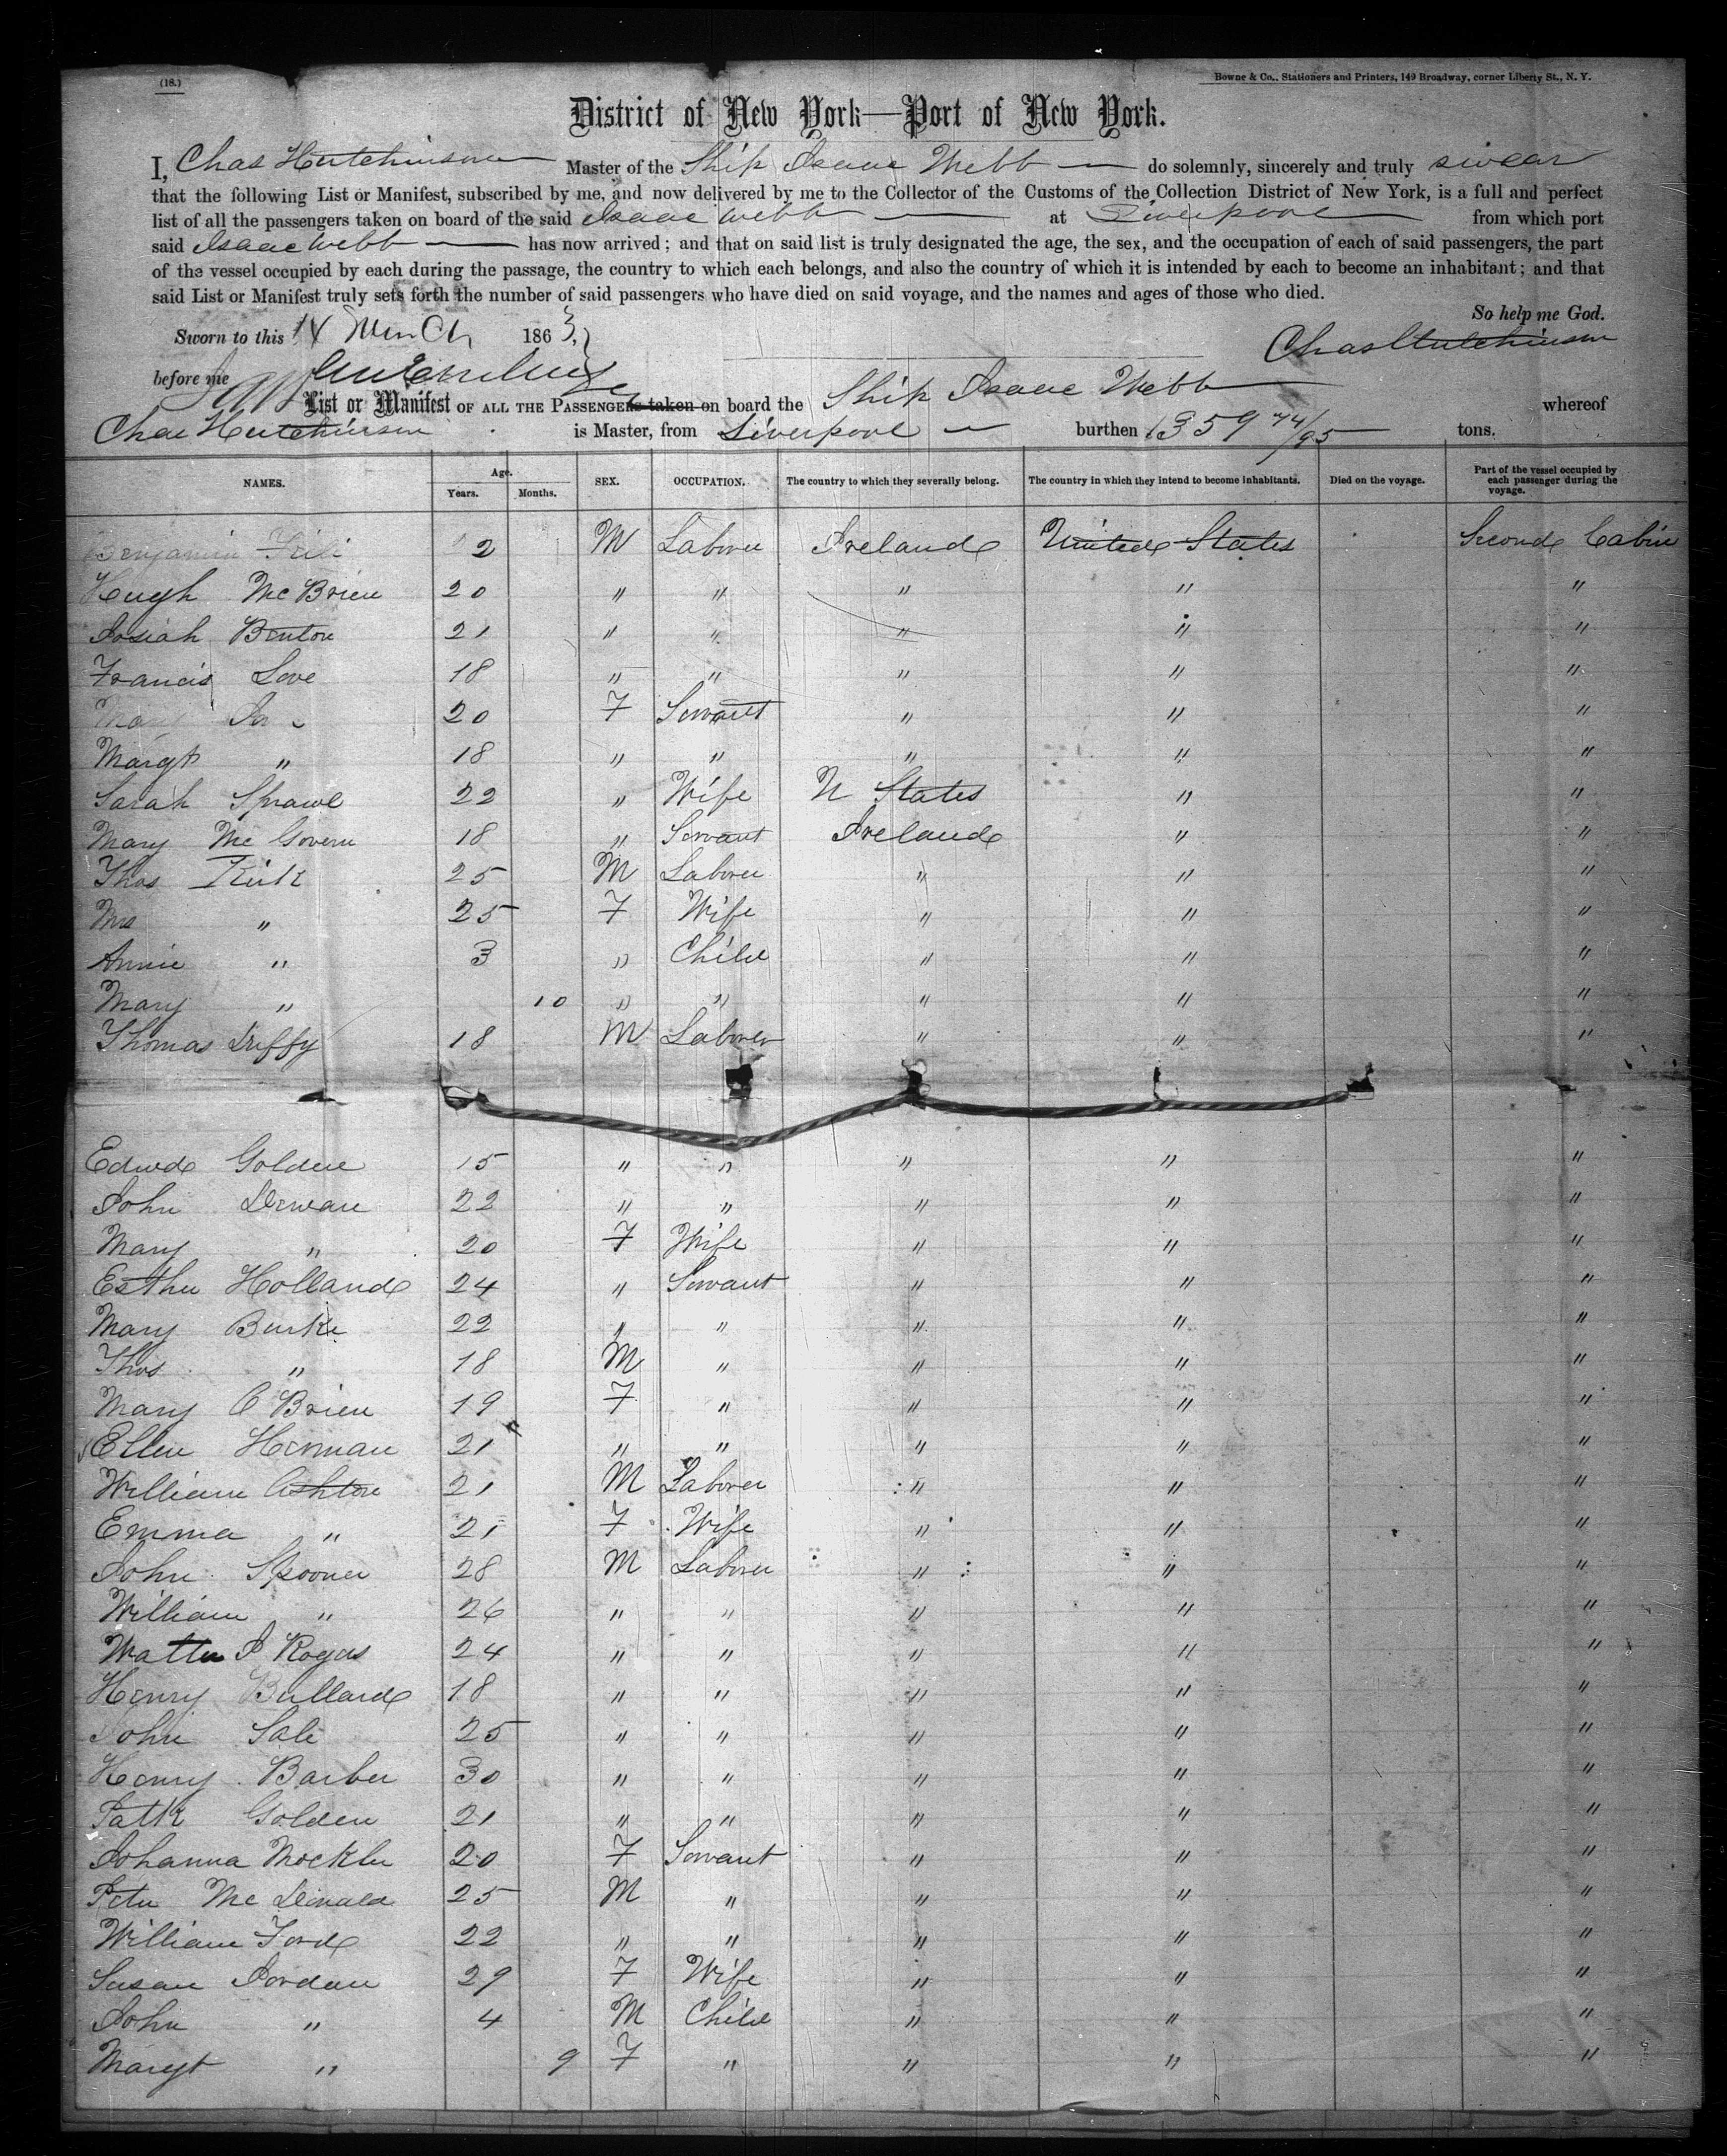 (18.)
Bowne & Co., Stationers and Printers, 149 Broadway, corner Liberty St., N. Y.
District of New York—Port of New York.
I, Chas Hutchinson Master of the Ship Isaac Webb do solemnly, sincerely and truly swear
that the following List or Manifest, subscribed by me, and now delivered by me to the Collector of the Customs of the Collection District of New York, is a full and perfect
list of all the passengers taken on board of the said Isaac Webb at Liverpool from which port
said Isaac Webb has now arrived; and that on said list is truly designated the age, the sex, and the occupation of each of said passengers, the part
of the vessel occupied by each during the passage, the country to which each belongs, and also the country of which it is intended by each to become an inhabitant; and that
said List or Manifest truly sets forth the number of said passengers who have died on said voyage, and the names and ages of those who died.
So help me God.
Sworn to this 14 March 1863,
Chas Hutchinson
before me
List or Manifest OF ALL THE PASSENGERS taken on board the Ship Isaac Webb whereof
Chas Hutchinson is Master, from Liverpool burthen 1359 74/95 tons.
NAMES. Age. Years. Months. SEX. OCCUPATION. The country to which they severally belong. The country in which they intend to become inhabitants. Died on the voyage. Part of the vessel occupied by each passenger during the voyage.
Benjamin 2 M Laborer Ireland United States Second Cabin
Hugh McBrien 20 " " " " "
Josiah Benton 21 " " " " "
Francis Love 18 " " " " "
Mary 20 F Servant " " "
Margt " 18 " " " " "
Sarah Sprawl 22 " Wife U States " "
Mary McGovern 18 " Servant Ireland " "
Thos Kirk 25 M Laborer " " "
Mrs " 25 F Wife " " "
Annie " 3 " Child " " "
Mary " 10 " " " " "
Thomas Duffy 18 M Laborer " " "
Edwd Golden 15 " " " " "
John Derwan 22 " " " " "
Mary " 20 F Wife " " "
Esther Holland 24 " Servant " " "
Mary Burke 22 " " " " "
Thos " 18 M " " " "
Mary O'Brien 19 F " " " "
Ellen Hernan 21 " " " " "
William Ashton 21 M Laborer " " "
Emma " 21 F Wife " " "
John Spooner 28 M Laborer " " "
William " 26 " " " " "
Walter J Rogers 24 " " " " "
Henry Bullard 18 " " " " "
John Sale 25 " " " " "
Henry Barber 30 " " " " "
Patk Golden 21 " " " " "
Johanna Mockler 20 F Servant " " "
Peter McDonald 25 M " " " "
William Ford 22 " " " " "
Susan Jordan 29 F Wife " " "
John " 4 M Child " " "
Margt " 9 F " " " "